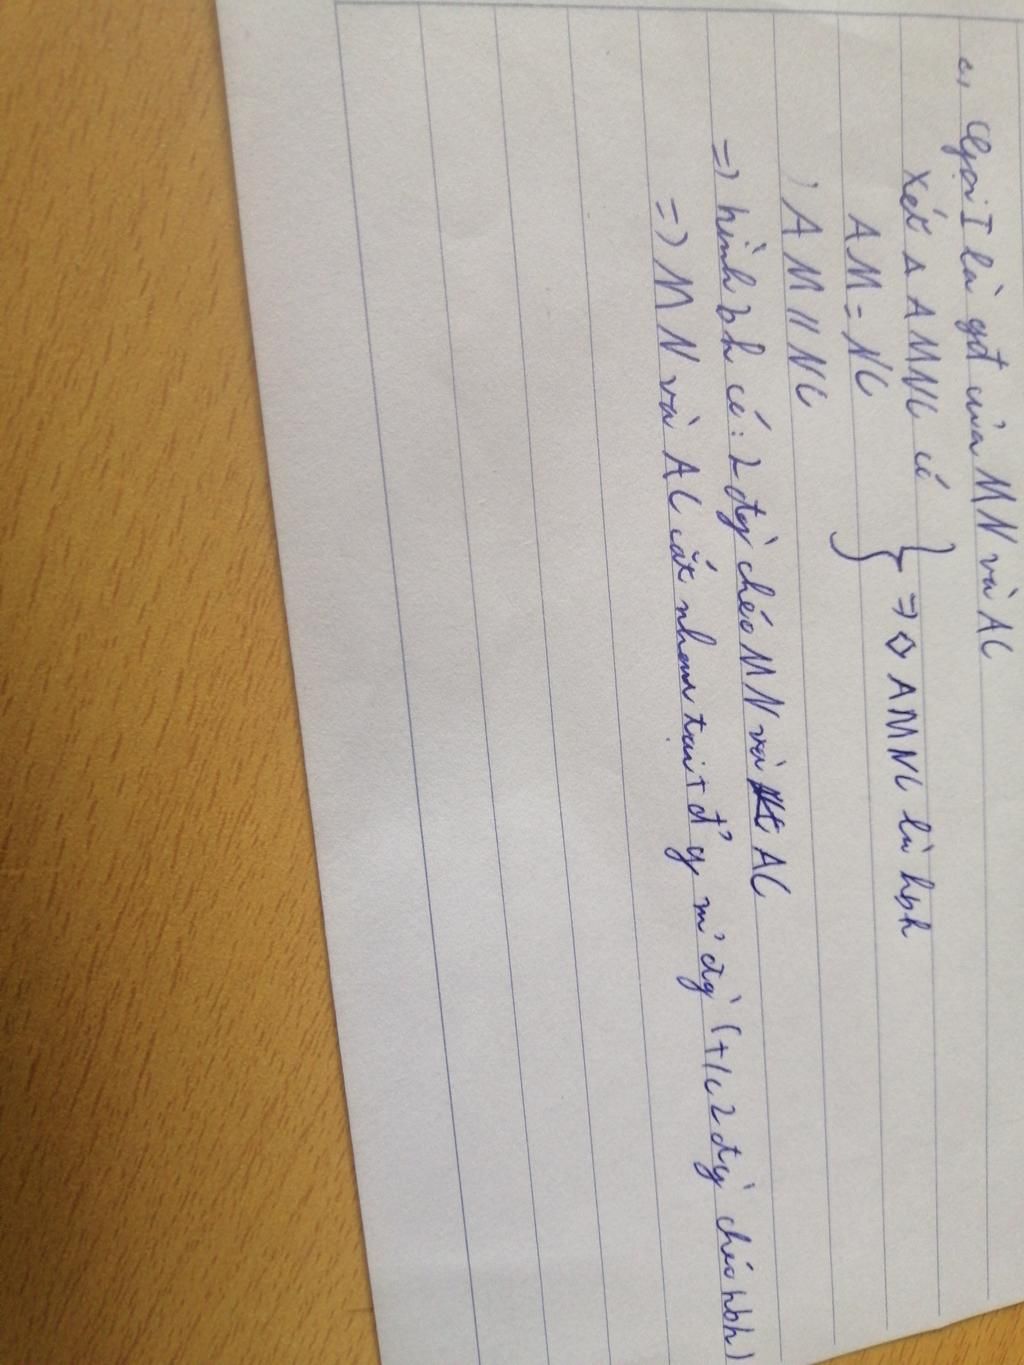 c, Gọi I là gđ của MN và AC
Xét △ AMNC có
AM = NC
AM // NC
} => ◇ AMNC là hbh
=> hình bh có: 2 đg` chéo MN và AC
=> MN và AC cắt nhau tại t đ' g m' đg` (t/c 2 đg` chéo hbh)